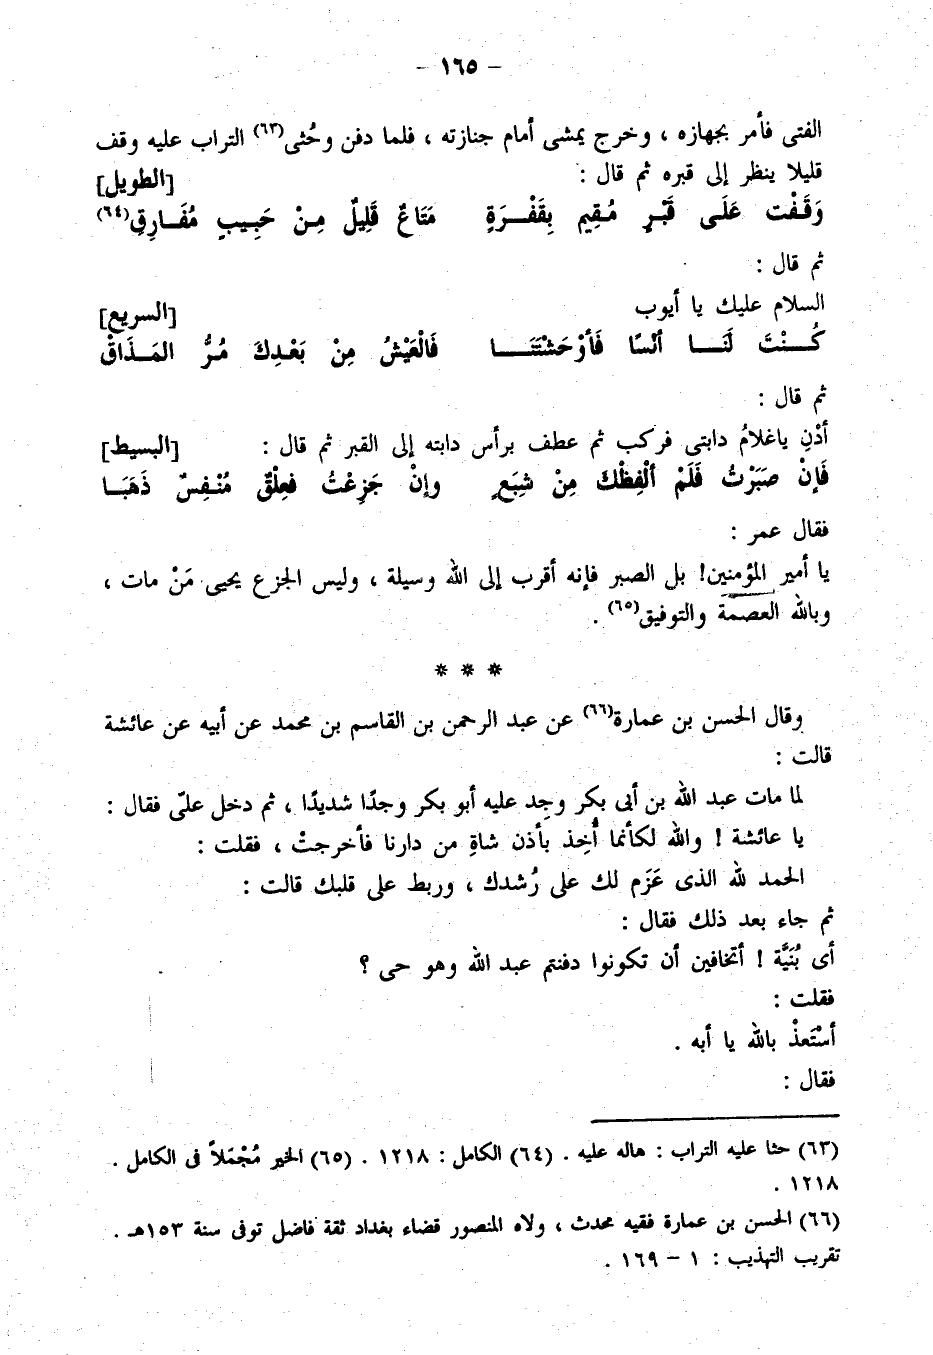 – ١٦٥ –
الفتى فأمر بجهازه ، وخرج يمشى أمام جنازته ، فلما دفن وحُثى(٦٣) التراب عليه وقف
قليلا ينظر إلى قبره ثم قال : [الطويل]
وَقَفْت عَلَى قَبْرٍ مُقِيم بِقَفْرَةٍ مَتَاعٌ قَلِيلٌ مِنْ حَبِيبٍ مُفَارِقِ(٦٤)
ثم قال :
السلام عليك يا أيوب [السريع]
كُنْتَ لَنَا أنْسًا فَأوْحَشْتَنَا فَالْعَيْشُ مِنْ بَعْدِكَ مُرُّ المَذَاقْ
ثم قال :
أدْنِ ياغلامُ دابتى فركب ثم عطف برأس دابته إلى القبر ثم قال : [البسيط]
فَإنْ صَبَرْتُ فَلَمْ ألْفِظْكَ مِنْ شِبَعٍ وإنْ جَزِعْتُ فعِلْقٌ مُنْفِسٌ ذَهَبَا
فقال عمر :
يا أمير المؤمنين! بل الصبر فإنه أقرب إلى الله وسيلة ، وليس الجزع يحيى مَنْ مات ،
وبالله العصمة والتوفيق(٦٥) .
* * *
وقال الحسن بن عمارة(٦٦) عن عبد الرحمن بن القاسم بن محمد عن أبيه عن عائشة
قالت :
لما مات عبد الله بن أبى بكر وجِد عليه أبو بكر وجدًا شديدًا ، ثم دخل علىّ فقال :
يا عائشة ! والله لكأنما أُخِذ بأذن شاةِ من دارنا فأخرجتْ ، فقلت :
الحمد لله الذى عَزَم لك على رُشدك ، وربط على قلبك قالت :
ثم جاء بعد ذلك فقال :
أى بُنَيَّة ! أتخافين أن تكونوا دفنتم عبد الله وهو حى ؟
فقلت :
أسْتَعذْ بالله يا أبه .
فقال :
(٦٣) حثا عليه التراب : هاله عليه . (٦٤) الكامل : ١٢١٨ . (٦٥) الخبر مُجْمَلاً فى الكامل .
١٢١٨ .
(٦٦) الحسن بن عمارة فقيه محدث ، ولاه المنصور قضاء بغداد ثقة فاضل توفى سنة ١٥٣هـ .
تقريب التهذيب : ١ – ١٦٩ .